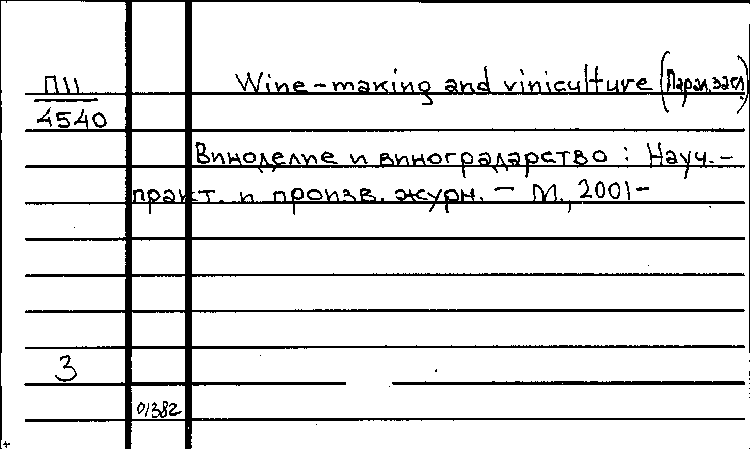 П11 Wine-making and viniculture (Парал. загл.)
4540
Виноделие и виноградарство : Науч.-
практ. и произв. журн. - М., 2001-
3
01382